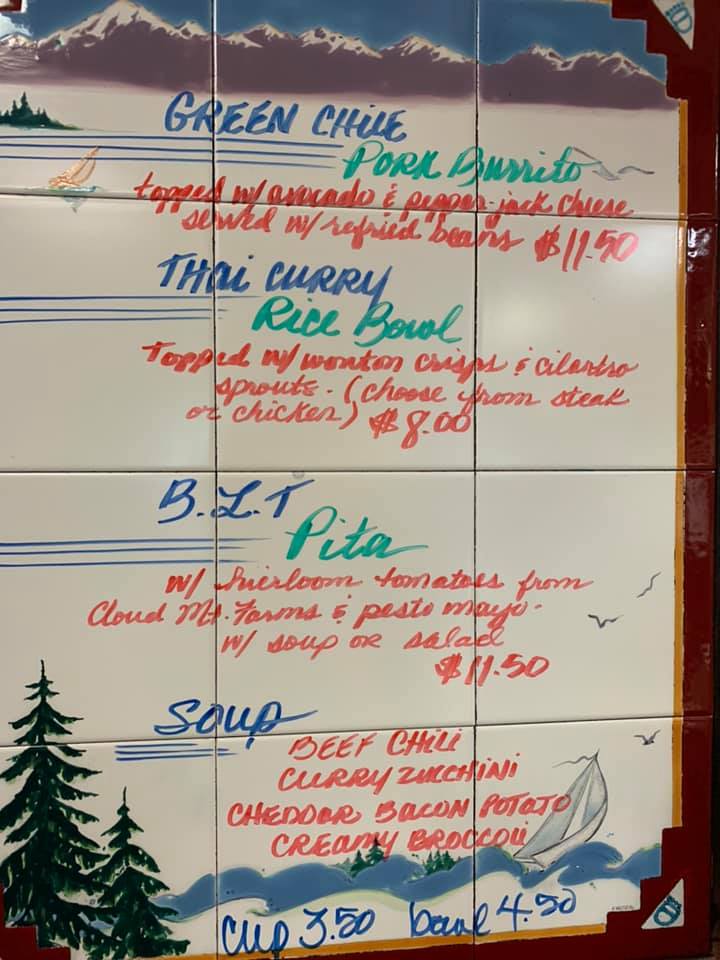 GREEN CHILE
Pork Burrito
topped w/ avocado & pepper-jack cheese
served w/ refried beans $11.50
THai CURRY
Rice Bowl
Topped w/ wonton crisps & cilantro
sprouts. (choose from steak
or chicken) $8.00
B.L.T
Pita
w/ hierloom tomatoes from
Cloud Mt. Farms & pesto mayo.
w/ soup or salad
$11.50
Soup
BEEF CHILI
CURRY ZUCCHINI
CHEDDAR BACON POTATO
CREAMY BROCCOLI
cup 3.50 bowl 4.50